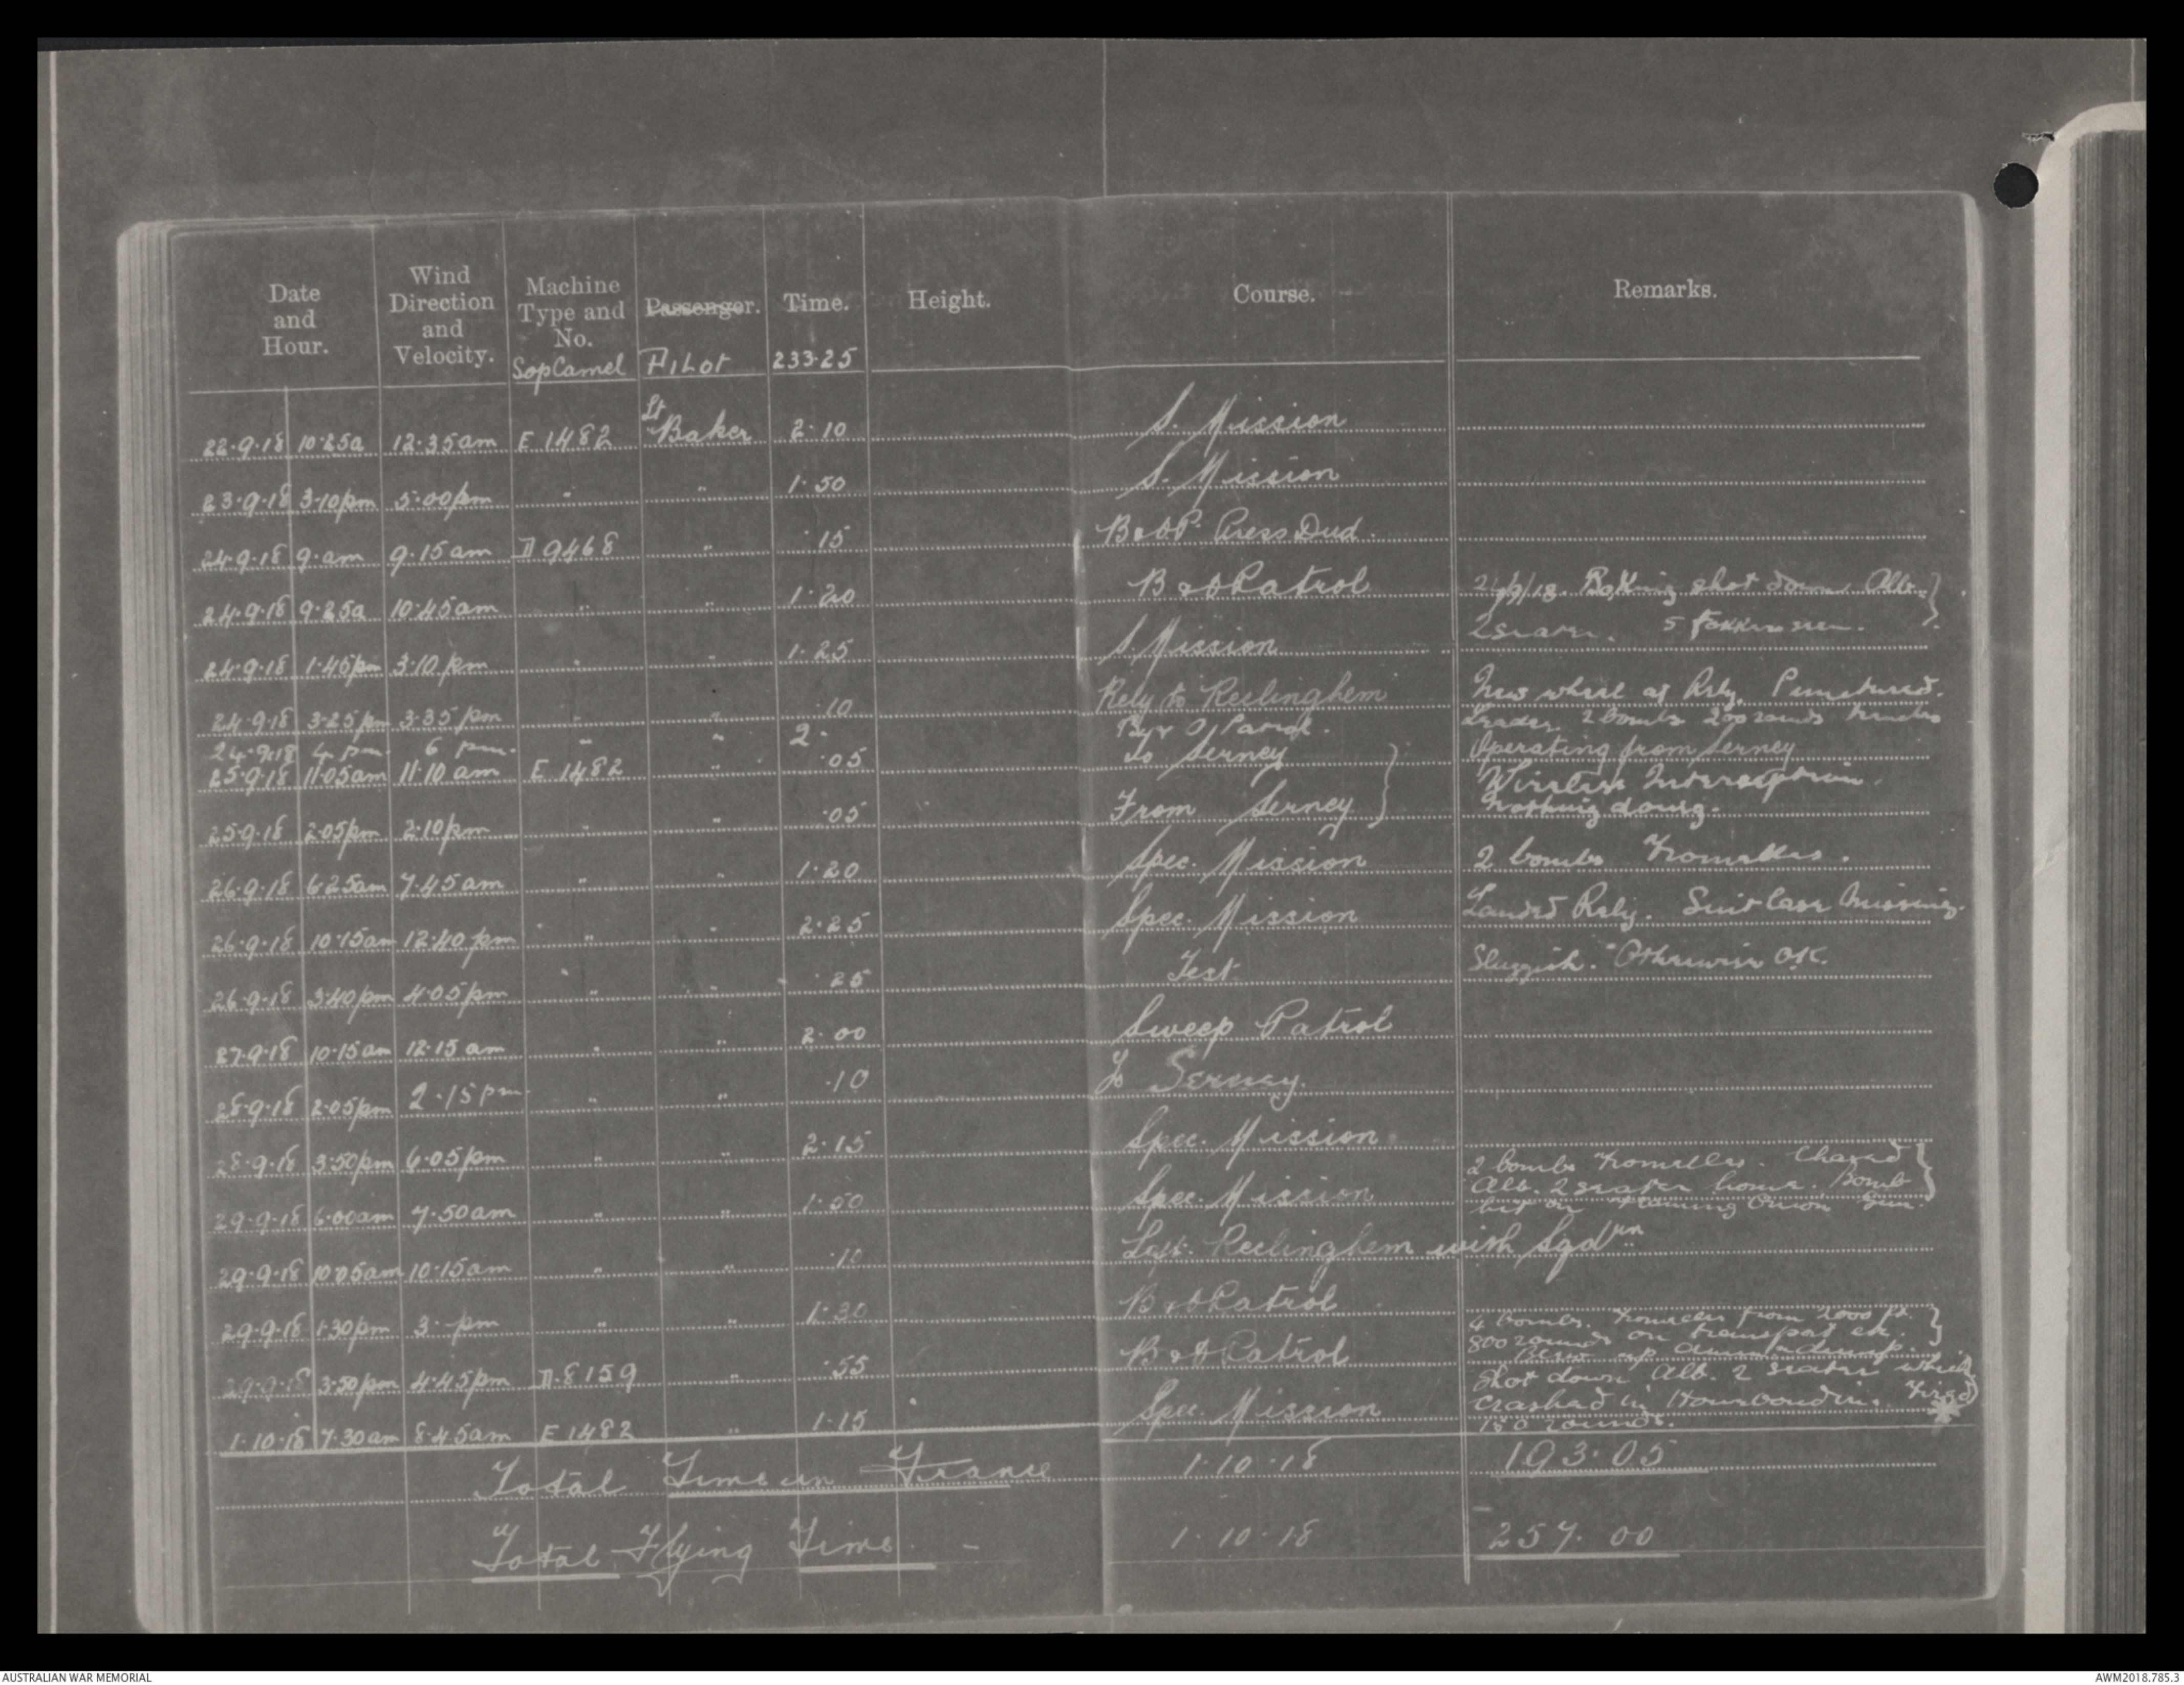 Date and Hour. Wind Direction and Velocity. Machine Type and No. Passenger. Time. Height. Course. Remarks.
SopCamel Pilot 233·25
22·9·18 10·25a 12·35am E 1482 Lt Baker 2·10 S. Mission
23·9·18 3·10pm 5·00pm " " 1·50 S. Mission
24·9·18 9·am 9·15am D 9468 " ·15 B&OP. Press Dud.
24·9·18 9·25a 10·45am " " 1·20 B & O Patrol 24/9/18. shot down Alb.
2 seater. 5 Fokkers seen.
24·9·18 1·45pm 3·10pm " " 1·25 S. Mission
24·9·18 3·25pm 3·35pm " " ·10 Rely to Reclinghem New wheel at Rely. Punctured.
24·9·18 4 pm. 6 pm. " " 2· O Patrol. Leader 2 bombs 200 rounds
25·9·18 11·05am 11·10am E 1482 " ·05 To Serney Operating from Serney
Wireless Interception.
25·9·18 2·05pm 2·10pm " " ·05 From Serney Nothing doing.
26·9·18 6·25am 7·45am " " 1·20 Spec. Mission 2 bombs Fromelles.
26·9·18 10·15am 12·40pm " " 2·25 Spec. Mission Landed Rely. Suit case Missing.
26·9·18 3·40pm 4·05pm " " ·25 Test Sluggish. Otherwise OK.
27·9·18 10·15am 12·15am " " 2·00 Sweep Patrol
28·9·18 2·05pm 2·15pm " " ·10 To Serney.
28·9·18 3·50pm 6·05pm " " 2·15 Spec. Mission
2 bombs Fromelles. Chased
29·9·18 6·00am 7·50am " " 1·50 Spec. Mission Alb. 2 seater home. Bomb
hit on Flaming Onion Gun.
29·9·18 10·05am 10·15am " " ·10 Left Reclinghem with Sqdrn
29·9·18 1·30pm 3· pm " " 1·30 B & O Patrol 4 bombs. Fromelles from 2000 ft.
800 rounds on transport etc.
Blew up dump.
29·9·18 3·50pm 4·45pm D·8159 " ·55 B & O Patrol Shot down Alb. 2 seater which
1·10·18 7·30am 8·45am E 1482 " 1·15 Spec. Mission crashed in Hourbourdin. Fired
150 rounds.
Total Time in France 1·10·18 193·05
Total Flying Time - 1·10·18 257·00
AUSTRALIAN WAR MEMORIAL AWM2018.785.3